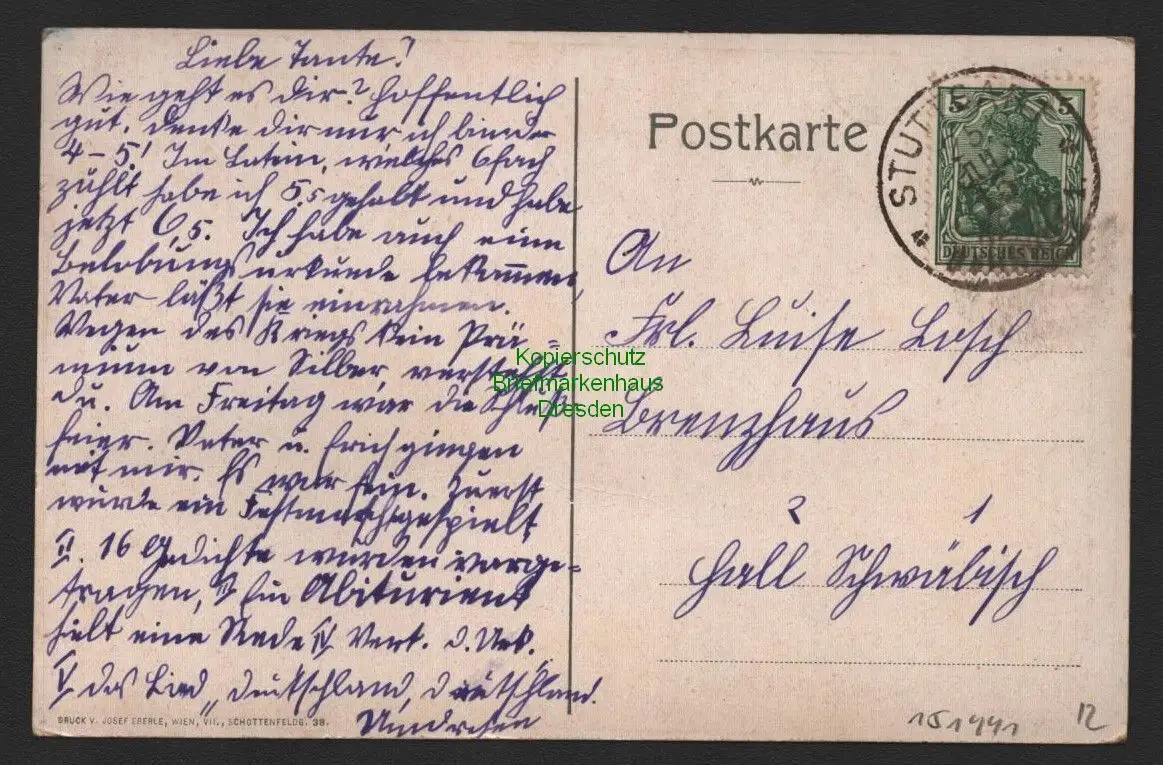 Liebe Tante!
Wie geht es dir? Hoffentlich
gut. Denke dir nur ich bin der
4–5! Im Latein, welches 6fach
zählt habe ich 5,5 gehabt und habe
jetzt 6,5. Ich habe auch eine
Belobungsurkunde bekommen,
Vater läßt sie einrahmen.
Wegen des Kriegs kein Prä-
mium von Silber, verstehst
du. Am Freitag war die Schluß-
feier. Vater u. Erich gingen
mit mir. Es war fein. Zuerst
wurde ein Festmarsch gespielt
II. 16 Gedichte wurden vorge-
tragen, Ein Abiturient
hielt eine Rede IV Vert. d. Urk.
V das Lied „Deutschland, Deutschland.
DRUCK V. JOSEF EBERLE, WIEN, VII., SCHOTTENFELDG. 38.
Postkarte
STUTTGART
DEUTSCHES REICH
5
An
Frl. Luise Losch
Brenzhaus
2 1
Hall Schwäbisch
151441
12
Kopierschutz
Briefmarkenhaus
Dresden